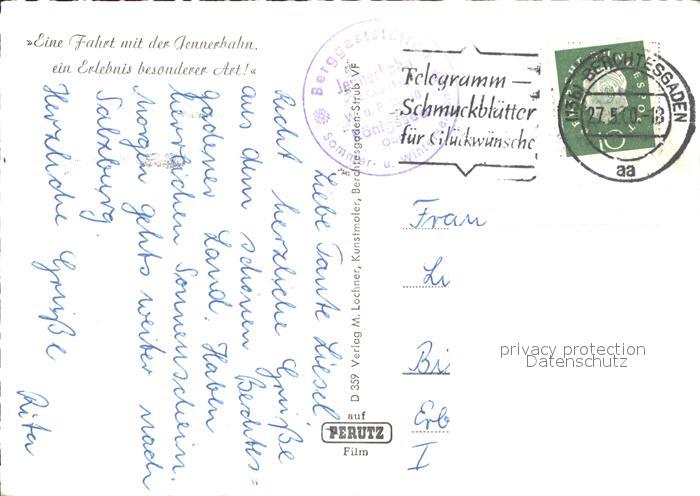 »Eine Fahrt mit der Jennerbahn,
ein Erlebnis besonderer Art!«
Liebe Tante Liesel
Recht herzliche Grüße
aus dem schönen Berchtes=
gadener Land. Haben
herrlichen Sonnenschein.
Morgen gehts weiter nach
Salzburg.
Herzliche Grüße
Rita
Berggaststätte
Jennerbahn
Sommer- u. Winter
D 359 Verlag M. Lochner, Kunstmaler, Berchtesgaden-Strub VF
auf
PERUTZ
Film
Telegramm —
Schmuckblätter
für Glückwünsche
(13b) BERCHTESGADEN
27.5.60.-18
aa
10
Frau
Li
Bi
Erb
I
privacy protection
Datenschutz